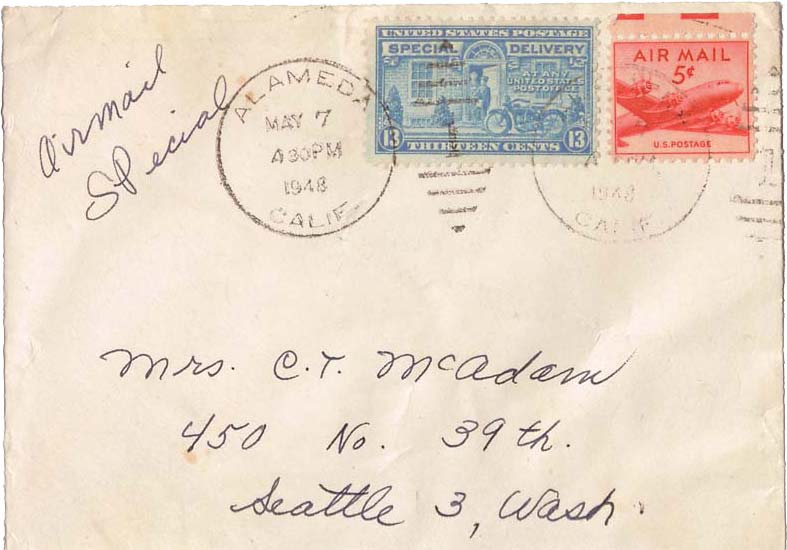 Airmail
Special
ALAMEDA
MAY 7
430PM
1948
CALIF.
UNITED STATES POSTAGE
SPECIAL DELIVERY
AT ANY
UNITED STATES
POST OFFICE
13 13
THIRTEEN CENTS
AIR MAIL
5¢
U.S. POSTAGE
1948
CALIF.
Mrs. C.T. McAdam
450 No. 39th.
Seattle 3, Wash.